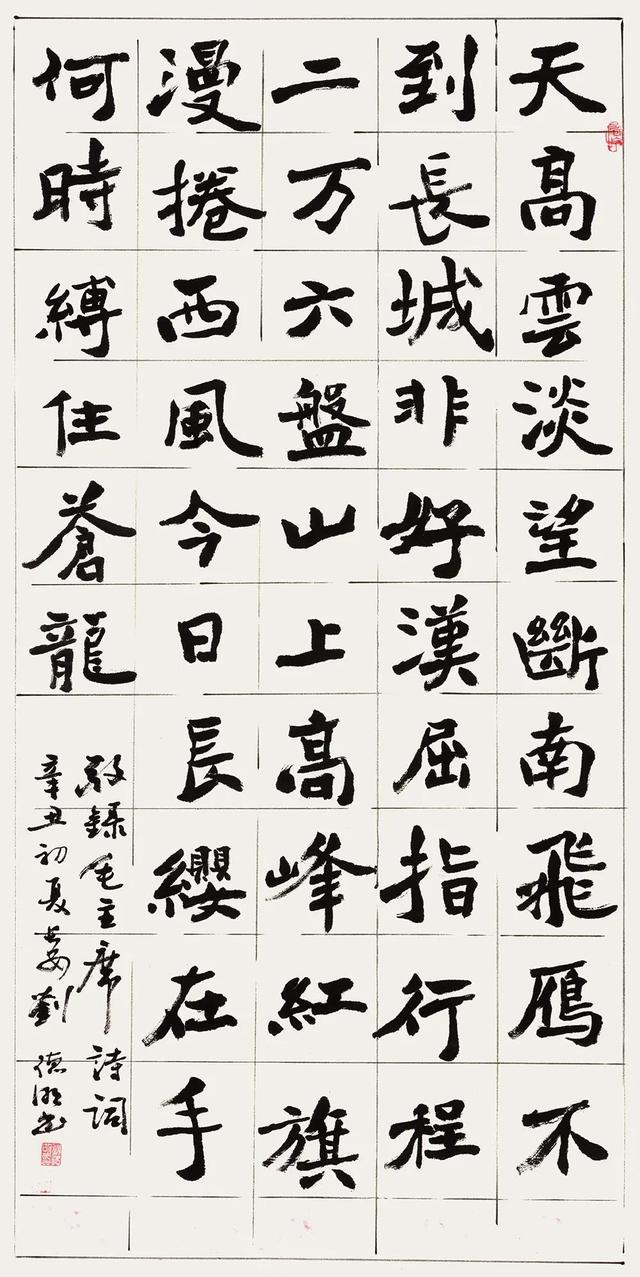 天髙雲淡望斷南飛鴈不
到長城非好漢屈指行程
二万六盤山上髙峰紅旗
漫捲西風今日長纓在手
何時縛住蒼龍
敬錄毛主席詩詞
辛丑初夏劉德书